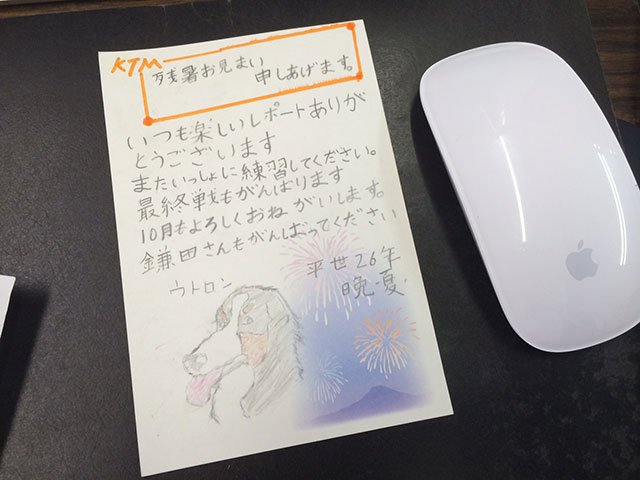 KTM
残暑お見まい
申しあげます。
いつも楽しいレポートありが
とうございます
またいっしょに練習してください。
最終戦もがんばります
10月もよろしくおねがいします。
鎌田さんもがんばってください
ウトロン
平世26年
晩夏